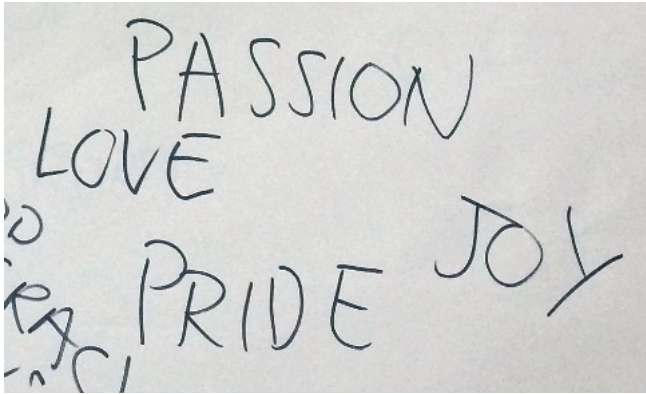 PASSION
LOVE
JOY
PRIDE